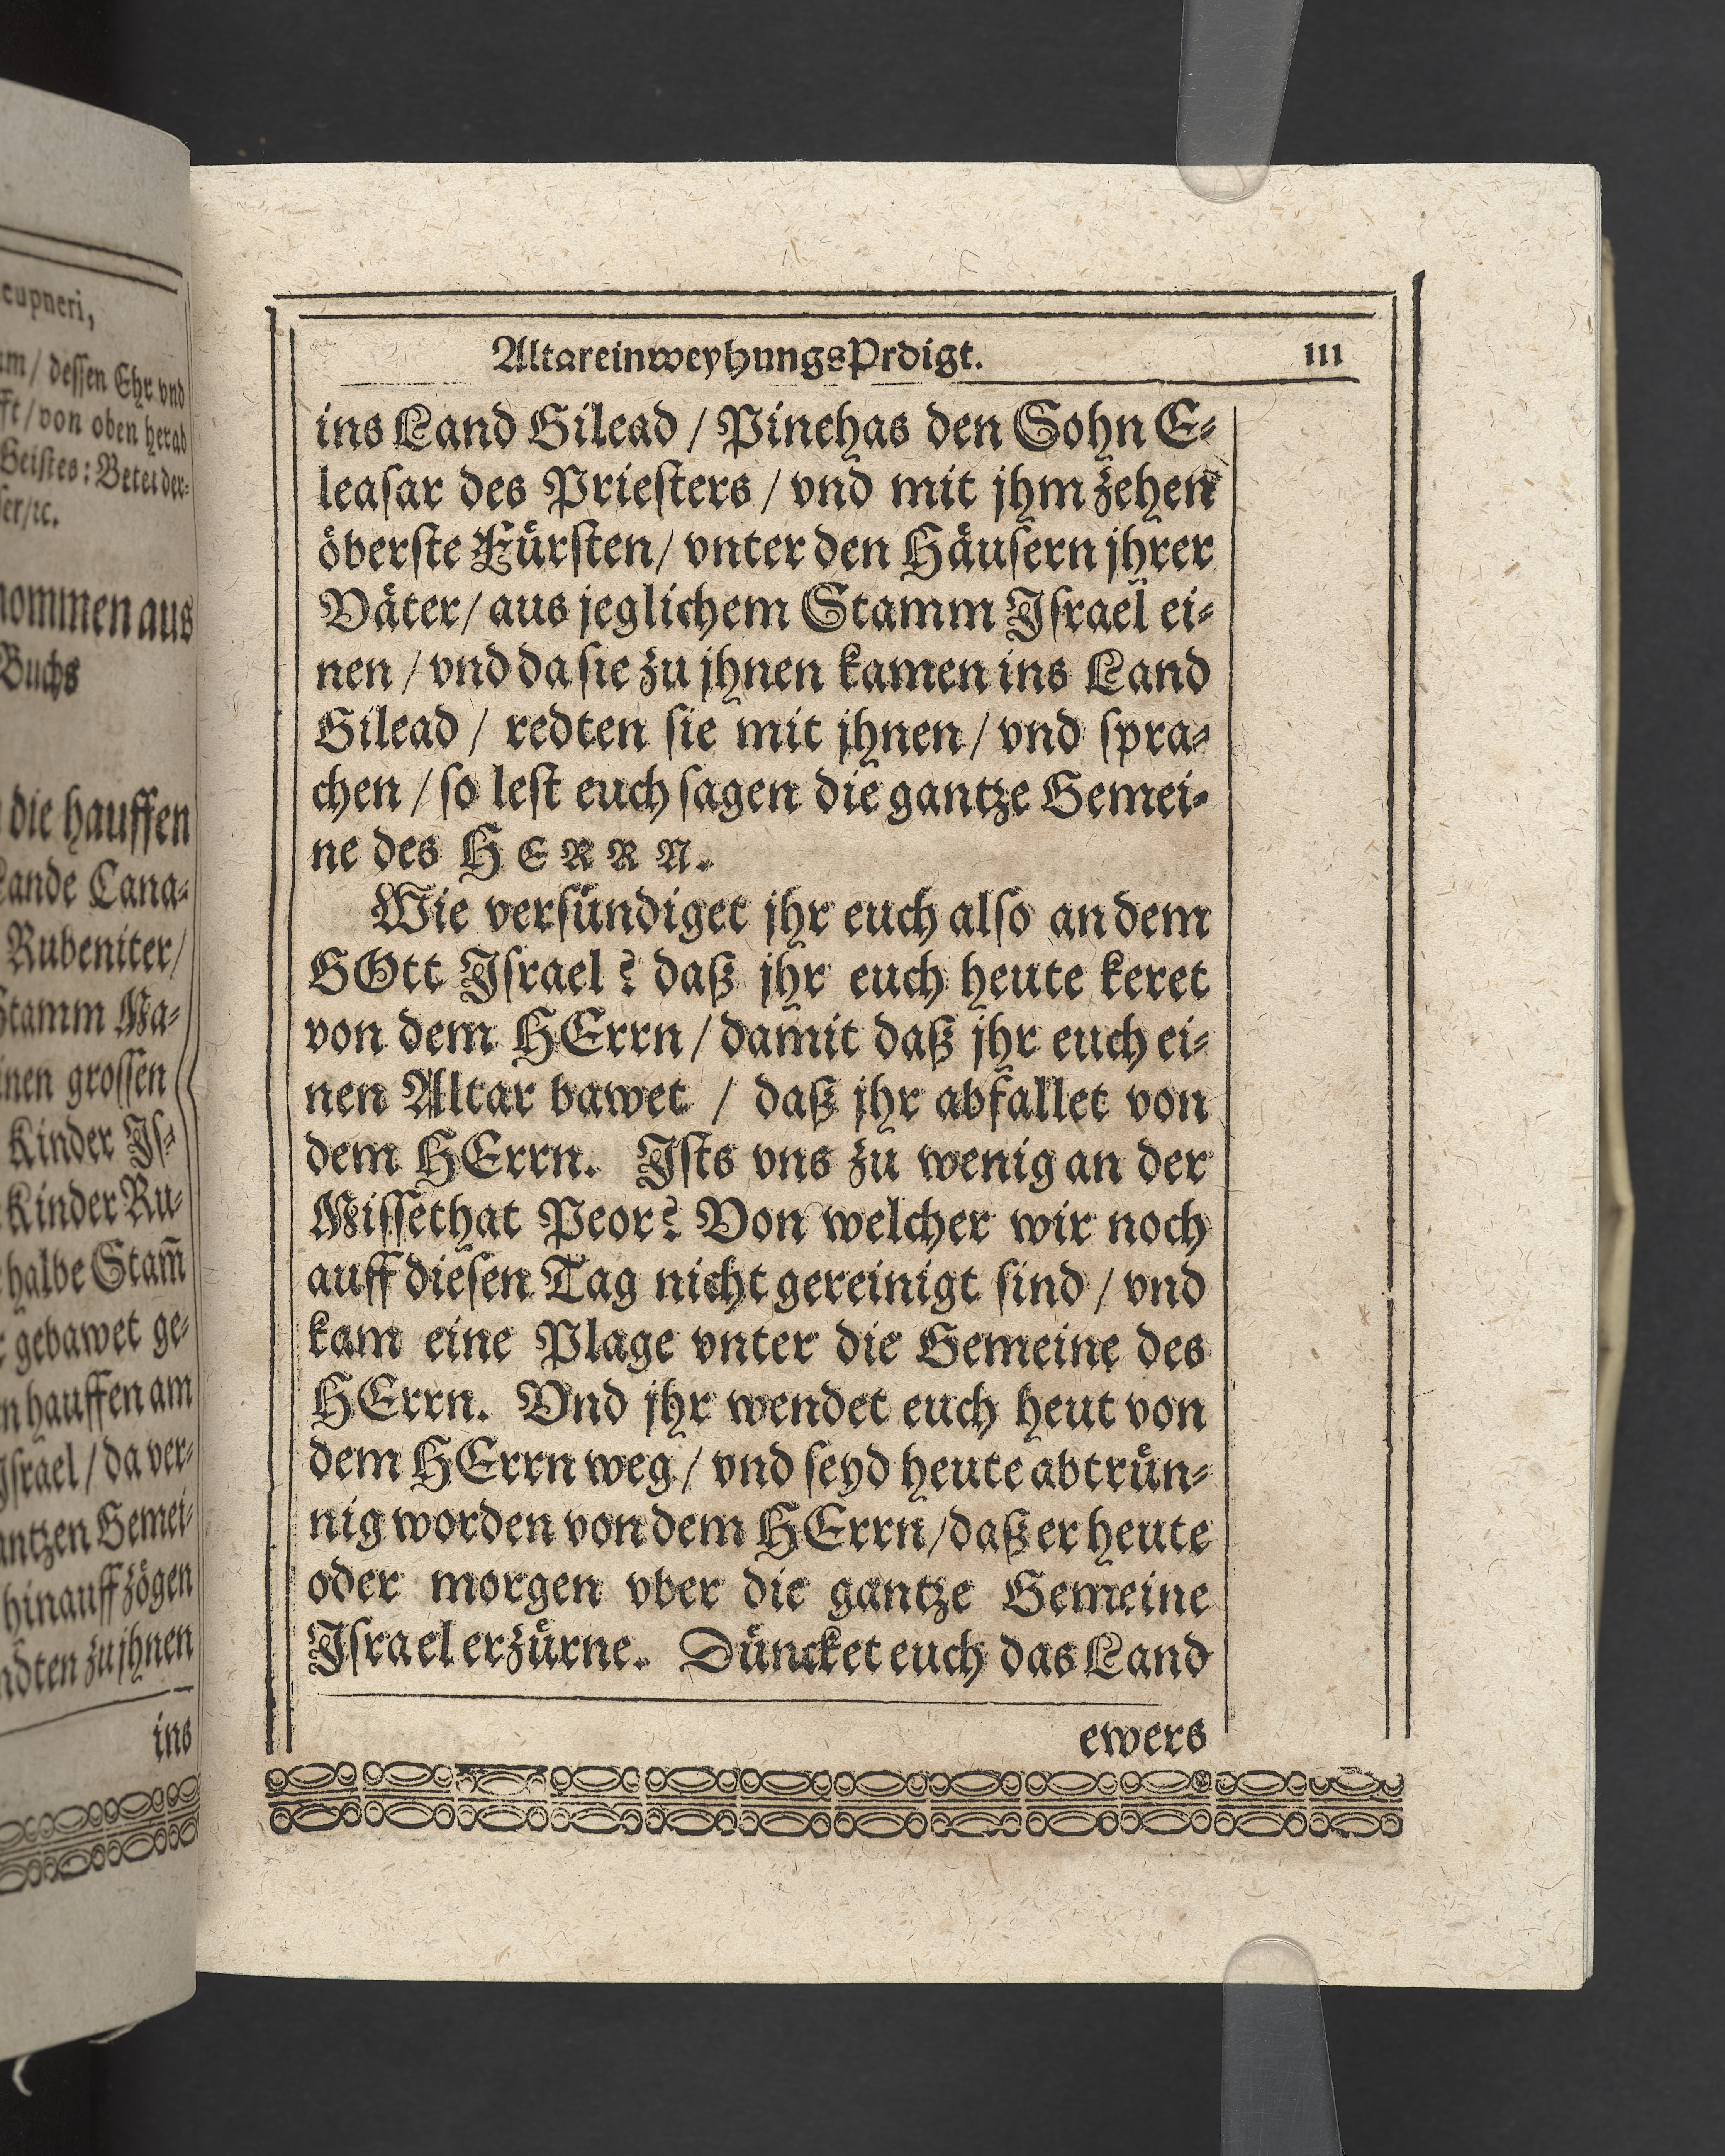 cupneri,
am/ dessen Ehr vnd
fft/von oben herab
Geistes: Betet der⸗
ser/ꝛc.
nommen aus
Buchs
die hauffen
Lande Cana⸗
Rubeniter/
Stamm Ma⸗
inen grossen
Kinder Jſ⸗
Kinder Ru⸗
halbe Stam̃
gebawet ge⸗
n hauffen am
Jſrael/da ver⸗
antzen Gemei⸗
hinauff zögen
ndten zu jhnen
ins
AltareinweyhungsPrdigt. 111
ins Land Gilead / Pinehas den Sohn E⸗
leaſar des Prieſters / vnd mit jhm zehen
öberſte Fürſten/ vnter den Häuſern jhrer
Väter/ aus jeglichem Stamm Jſrael ei⸗
nen / vnd da ſie zu jhnen kamen ins Land
Gilead / redten ſie mit jhnen / vnd ſpra⸗
chen / ſo leſt euch ſagen die gantze Gemei⸗
ne des HERRN.
Wie verſündiget jhr euch alſo an dem
GOtt Jſrael? daß jhr euch heute keret
von dem HErrn / damit daß jhr euch ei⸗
nen Altar bawet / daß jhr abfallet von
dem HErrn. Jſts vns zu wenig an der
Miſſethat Peor? Von welcher wir noch
auff dieſen Tag nicht gereinigt ſind / vnd
kam eine Plage vnter die Gemeine des
HErrn. Vnd jhr wendet euch heut von
dem HErrn weg / vnd ſeyd heute abtrün⸗
nig worden von dem HErrn/daß er heute
oder morgen vber die gantze Gemeine
Jſrael erzürne. Düncket euch das Land
ewers